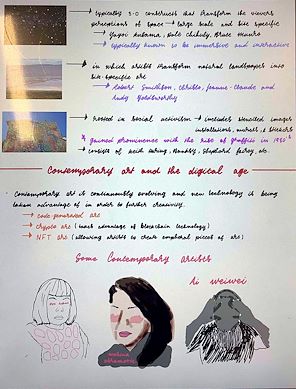 → typically 3-D constructs that transform the viewers
perceptions of space → large scale and site specific
→ Yayoi Kusama, Dale Chihuly, Bruce Munro
→ typically known to be immersive and interactive
→ in which artists transform natural landscapes into
site-specific art
→ Robert Smithson, Christo, Jeanne-Claude and
Andy Goldsworthy
→ rooted in social activism → includes stenciled images
installations, murals, & stickers
* gained prominence with the rise of graffiti in 1980s
→ consists of Keith Haring, Banksy, Shephard Fairey, etc.
Contemporary art and the digital age
· Contemporary art is continuously evolving and new technology is being
taken advantage of in order to further creativity.
→ code-generated art
→ crypto art (takes advantage of blockchain technology)
→ NFT art (allowing artists to create empirical pieces of art)
Some Contemporary artists
Ai weiwei
marina
abramovic